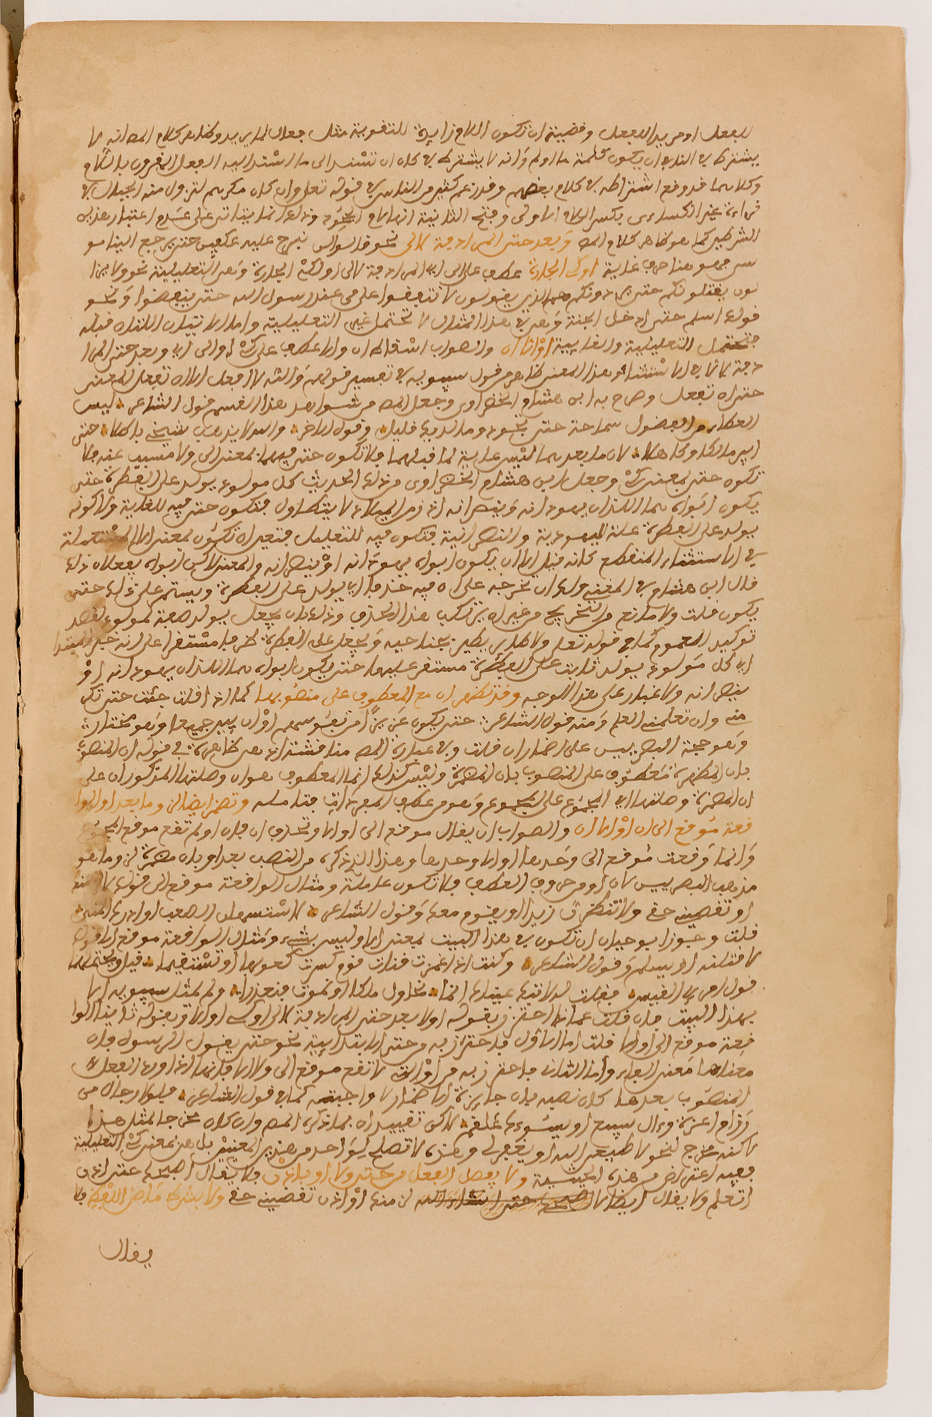 للفعل او مريدا للفعل وقضيته ان تكون اللام زايدة للتقوية مثل فعال لما يريد وظاهر كلام المص انه لا
يشترط في الناسخ ان يكون كلمة ما او لم وانه لا يشترط في كل ان تسند الى ما اسند اليه الفعل المقرون باللام
وكلاهما قد وقع اشتراطه في كلام بعضهم وقد زعم كثير من الناس في قوله تعلى وان كان مكرهم لتزول منه الجبال في
قراءة غير الكسائي بكسر اللام الاولى وفتح الثانية انها لام الجحود
الشرطين كما هو ظاهر كلام المص وبعد حتى المرادفة لالى نحو قالوا لن نبرح عليه عكفين حتى يرجع الينا موسى
او كي الجارة عطف على الى اي المرادفة لالى او لكي الجارة وهي التعليلية نحو ولا يزا
لون يقتلونكم حتى يردوكم هم الذين يقولون لا تنفقوا على من عند رسول الله حتى ينفضوا ونحو
قولك اسلم حتى تدخل الجنة وهي في هذا المثال لا تحتمل غير التعليلية واما الايتان اللتان قبله
فتحتمل التعليلية والغايية او الا ان والصواب اسقاط ان والا عطف على كي او الى اي وبعد حتى المرا
دفة لالا في الاستثناء وهذا المعنى ظاهر من قول سيبويه في تفسير قولهم والله لا افعل الا ان تفعل المعنى
حتى ان تفعل وصرح به ابن هشام الخضراوي وجعل المص من شواهد هذا القسم قول الشاعر ليس
العطاء من الفضول سماحة حتى تجود وما لديك قليل وقول الاخر والله لا يذهب شيخي باطلا حتى
ابير مالكا وكاهلا لان ما بعدهما ليس غاية لما قبلهما فلا تكون حتى فيهما بمعنى الى ولا مسبب عنه فلا
تكون حتى بمعنى كي وجعل ابن هشام الخضراوي من ذلك الحديث كل مولود يولد على الفطرة حتى
يكون ابواه هما اللذان يهودانه وينصرانه اذ زمن الميلاد لا يتطاول فتكون حتى فيه للغاية ولا كونه
يولد على الفطرة علة لليهودية والنصرانية فتكون فيه للتعليل فتعين ان تكون بمعنى الا المستعملة
في الاستثناء المنقطع كانه قيل الا ان يكون ابواه يهودانه او ينصرانه والمعنى لاكن ابواه يفعلان ذلك
قال ابن هشام في المغني ولك ان تخرجه على ان فيه حذفا اي يولد على الفطرة ويستمر على ذلك حتى
يكون قلت ولا مانع من تخريجه من غير ان يرتكب هذا الحذف وذلك بان يجعل يولد صفة لمولود لقصد
توكيد العموم كما في قوله تعلى ولا طاير يطير بجناحيه ويجعل على الفطرة ظرفا مستقرا على انه خبر المبتدا
اي كل مولود يولد ثابت على الفطرة مستقر عليها حتى يكون ابواه هما اللذان يهودانه او
ينصرانه ولا غبار على هذا الوجه وقد تظهر ان مع المعطوف على منصوبها كما اذا قلت جئت حتى تكر
منه وان تعلمه العلم ومنه قول الشاعر حتى يكون عزيزا من نفوسهم او ان يبين جميعا وهو مختار
وهو حجة البصريين على اضمار ان قلت وفي عبارة المص مناقشة اذ هي ظاهرة في قوله ان المنصوب
بان المظهرة معطوف على المنصوب بان المضمرة وليس كذلك انما المعطوف هو ان وصلتها المذكوران على
ان المضمرة وصلتها اي المجموع على المجموع وهو من عطف المفردات فتامله وتضمر ايضا لزوما بعد او الوا
قعة موقع الى ان او الا ان والصواب ان يقال موقع الى او الا وتحذف ان فان او لم تقع موقع المجموع
وانما وقعت موقع الى وحدها او الا وحدها وهذا الذي ذكره من النصب بعد او بان مضمرة لزوما هو
مذهب البصريين لان او من حروف العطف فلا تكون عاملة ومثال الواقعة موقع الى قولك لالزمنك
او تقضيني حقي ولانتظرن زيدا او يقوم معنا وقول الشاعر لاستسهلن الصعب او ادرك المنى
قلت وجوز ابو حيان ان تكون في هذا البيت بمعنى الا وليس بشيء ومثال الواقعة موقع الا قولك
لاقتلنه او يسلم وقول الشاعر وكنت اذا غمزت قناة قوم كسرت كعوبها او تستقيما قيل ويحتملهما
قول امرئ القيس فقلت له لا تبك عيناك انما نحاول ملكا او نموت فنعذرا ولم يمثل سيبويه الا
بهذا البيت فان قلت عماذا احترز بقوله اولا بعد حتى المرادفة لالى او كي او الا وبقوله ثانيا الوا
قعة موقع الى او الا قلت اما الاول فاحترز به من حتى الابتدايية نحو حتى يقول الرسول فان
معناها معنى الفاء واما الثاني فاحترز به من او التي لا تقع موقع الى ولا الا فانها اذا ورد الفعل
المنصوب بعدها كان نصبه بان جايزة الاضمار لا واجبته كما في قول الشاعر فلولا رجال من
رزام اعزة وءال سبيع او يسوءك علقما لاكن تقييد ان بما ذكر المص وان كان مخرجا لمثل هذا
لاكنه مخرج لنحو لاطيعن الله او يغفر لي وهذه لا تصلح لواحد من هذين المعنيين بل هي بمعنى كي التعليلية
ففيه اعتراض من هذه الحيثية ولا يفصل الفعل من حتى ولا او باذن فلا يقال اصحبك حتى اذن
اتعلم ولا يقال ايضا لالزمنك او اذن تقضيني حقي ولا بشرط ماض اللفظ فلا
يقال